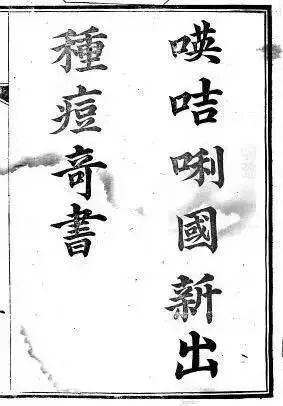 嘆咭唎國新出
種痘奇書